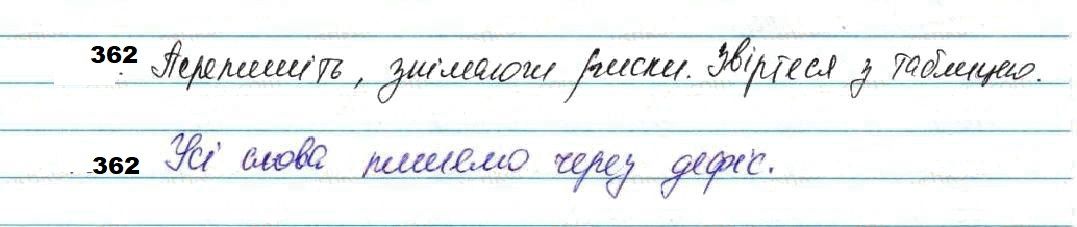 362 Перепишіть, знімаючи риски. Звіртеся з таблицею.
362 Усі слова пишемо через дефіс.